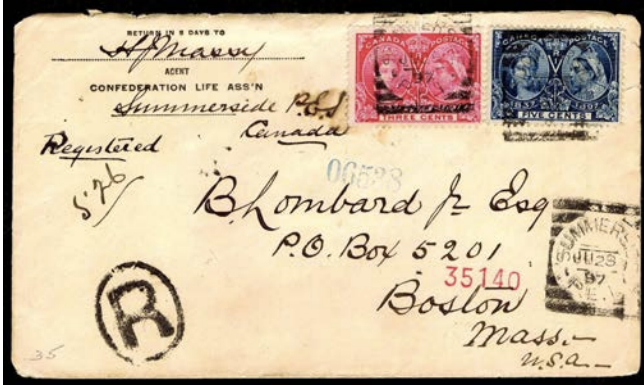 RETURN IN 5 DAYS TO
H J Massy
AGENT
CONFEDERATION LIFE ASS'N
Summerside P.E.I
Canada
Registered
526
CANADA POSTAGE
THREE CENTS
CANADA POSTAGE
1837 1897
FIVE CENTS
06538
B Lombard Jr Esq
P.O. Box 5201
35140
Boston
Mass.
U.S.A.
SUMMERS
JU 23
97
R
35